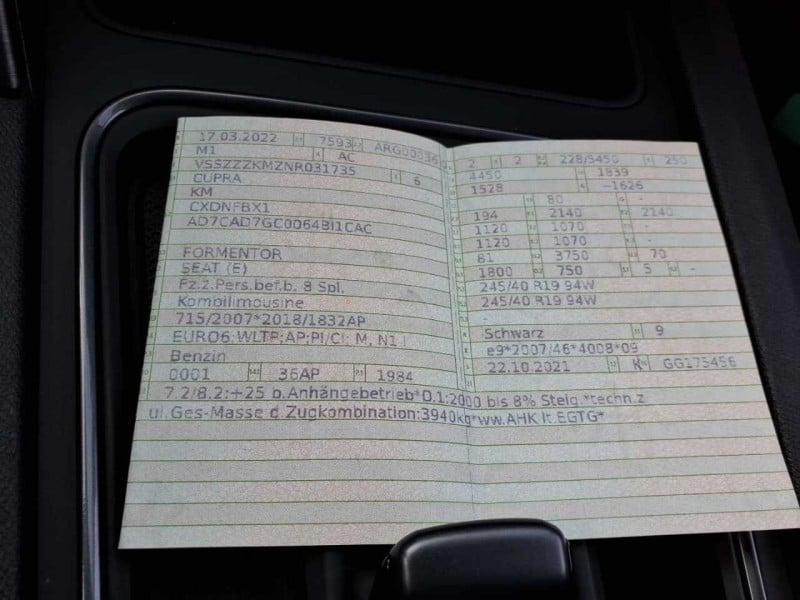 17.03.2022 7593 ARG00036
M1 AC
VSSZZZKMZNR031735
CUPRA 6
KM
CXDNFBX1
AD7CAD7GC0064BI1CAC
FORMENTOR
SEAT (E)
Fz.z.Pers.bef.b. 8 Spl.
Kombilimousine
715/2007*2018/1832AP
EURO6;WLTP;AP;PI/CI; M, N1 I
Benzin
0001 36AP 1984
2 2 228/5450 250
4450 1839
1528 –1626
80 -
194 2140 2140
1120 1070 -
1120 1070 -
81 3750 70
1800 750 5 -
245/40 R19 94W
245/40 R19 94W
-
Schwarz 9
e9*2007/46*4008*09
22.10.2021 K GG175456
7.2/8.2:+25 b.Anhängebetrieb*O.1:2000 bis 8% Steig.*techn.z
ul.Ges-Masse d.Zugkombination:3940kg*ww.AHK lt.EGTG*